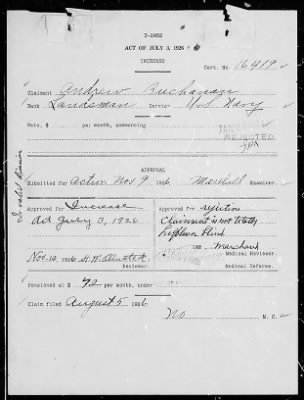 3-2452
ACT OF JULY 3, 1926
INCREASE
Cert. No. 16419
Claimant Andrew Buchanan
Rank Landsman Service U.S. Navy
Rate, $ per month, commencing
REJECTED
Invalid Division
APPROVAL
Submitted for Action Nov 9, 1926, Marshall Examiner.
Approved for Increase
Act July 3, 1926
Nov. 10, 1926
Reviewer.
Approved for rejection
Claimant is not totally
helpless or blind
192 Marchand
Medical Reviewer.
Medical Referee.
Pensioned at $ 72 per month, under
Claim filed August 5 1926
No M. C.